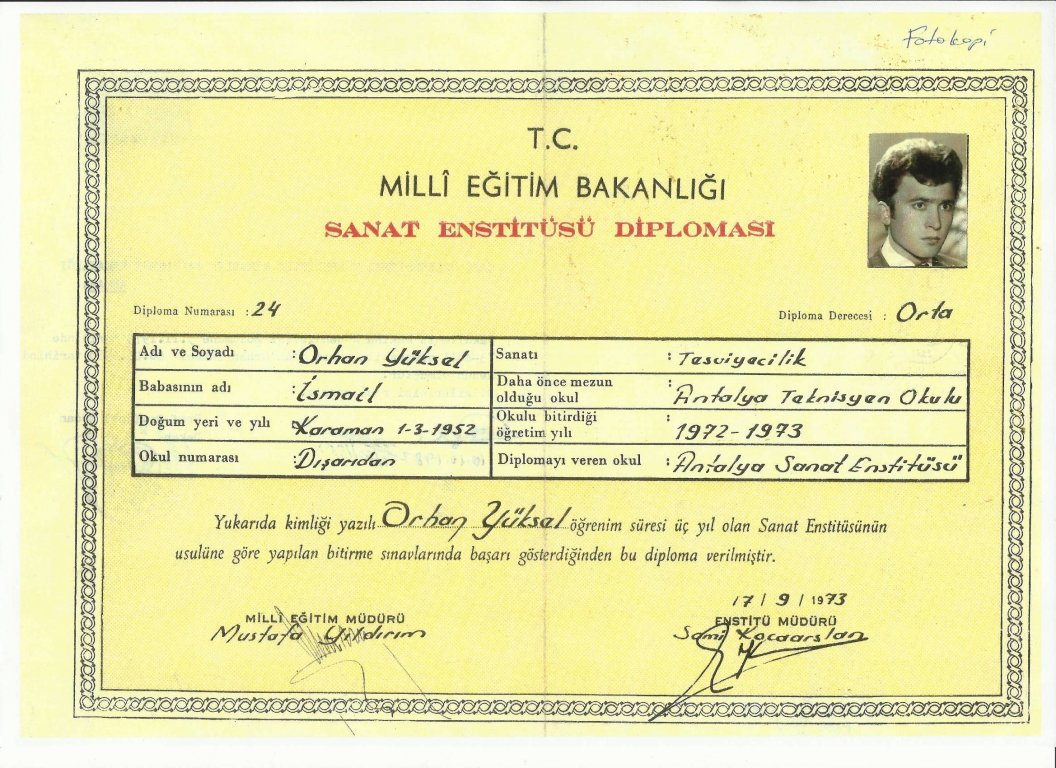 Fotokopi
T.C.
MİLLÎ EĞİTİM BAKANLIĞI
SANAT ENSTİTÜSÜ DİPLOMASI
Diploma Numarası : 24
Diploma Derecesi : Orta
Adı ve Soyadı : Orhan Yüksel
Babasının adı : İsmail
Doğum yeri ve yılı : Karaman 1-3-1952
Okul numarası : Dışarıdan
Sanatı : Tesviyecilik
Daha önce mezun
olduğu okul : Antalya Teknisyen Okulu
Okulu bitirdiği
öğretim yılı : 1972-1973
Diplomayı veren okul : Antalya Sanat Enstitüsü
Yukarıda kimliği yazılı Orhan Yüksel öğrenim süresi üç yıl olan Sanat Enstitüsünün
usulüne göre yapılan bitirme sınavlarında başarı gösterdiğinden bu diploma verilmiştir.
MİLLÎ EĞİTİM MÜDÜRÜ
Mustafa Yıldırım
17 / 9 / 1973
ENSTİTÜ MÜDÜRÜ
Sami Kocaarslan